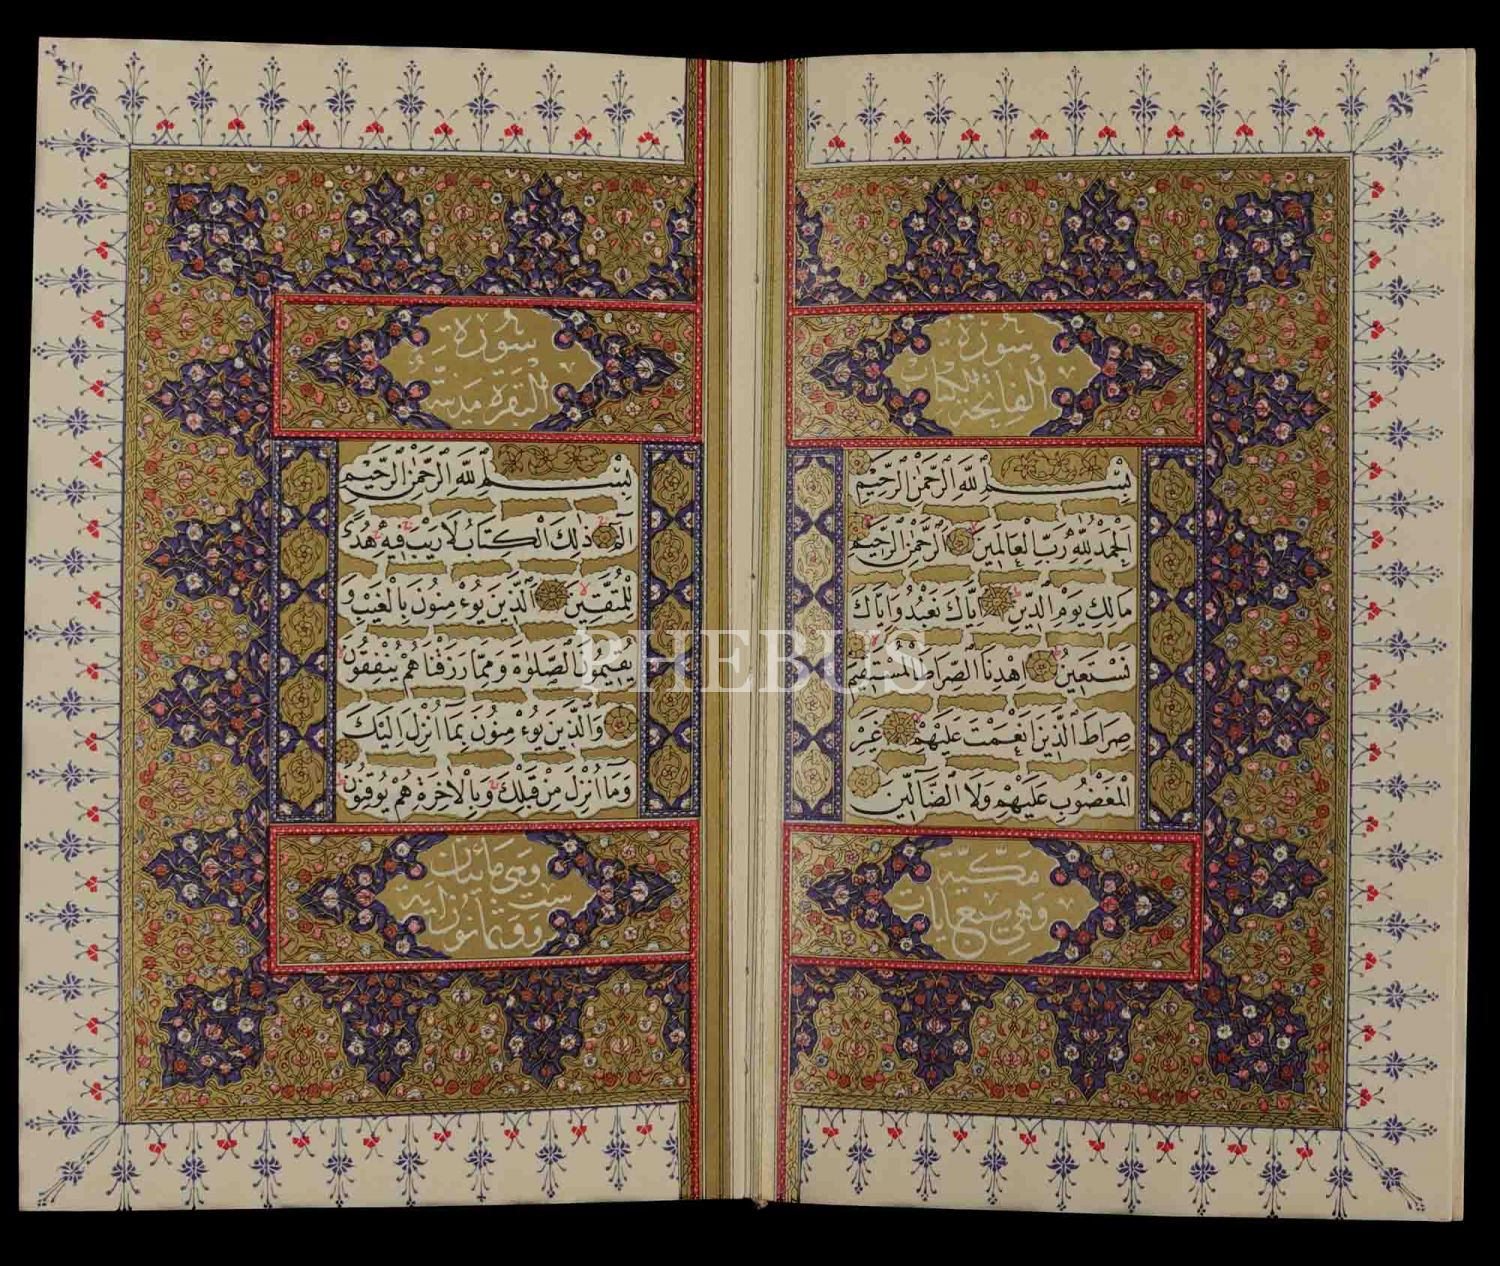 سورة
الفاتحة الكتاب
بِسْمِ اللّٰهِ الرَّحْمٰنِ الرَّحِيمِ
اَلْحَمْدُ لِلّٰهِ رَبِّ الْعَالَمِينَ اَلرَّحْمٰنِ الرَّحِيمِ
مَالِكِ يَوْمِ الدِّينِ اِيَّاكَ نَعْبُدُ وَاِيَّاكَ
نَسْتَعِينُ اِهْدِنَا الصِّرَاطَ الْمُسْتَقِيمَ
صِرَاطَ الَّذِينَ اَنْعَمْتَ عَلَيْهِمْ غَيْرِ
الْمَغْضُوبِ عَلَيْهِمْ وَلَا الضَّٓالِّينَ
مَكِّيَّة
وَهِيَ سبع اٰيات
سورة
البقرة مدنية
بِسْمِ اللّٰهِ الرَّحْمٰنِ الرَّحِيمِ
الٓمٓ ذٰلِكَ الْكِتَابُ لَا رَيْبَ فِيهِ هُدًى
لِلْمُتَّقِينَ اَلَّذِينَ يُؤْمِنُونَ بِالْغَيْبِ وَ
يُقِيمُونَ الصَّلٰوةَ وَمِمَّا رَزَقْنَاهُمْ يُنْفِقُونَ
وَالَّذِينَ يُؤْمِنُونَ بِمَٓا اُنْزِلَ اِلَيْكَ
وَمَٓا اُنْزِلَ مِنْ قَبْلِكَ وَبِالْاٰخِرَةِ هُمْ يُوقِنُونَ
وهي مأيتان
ست
وثمانون اية
PHEBUS